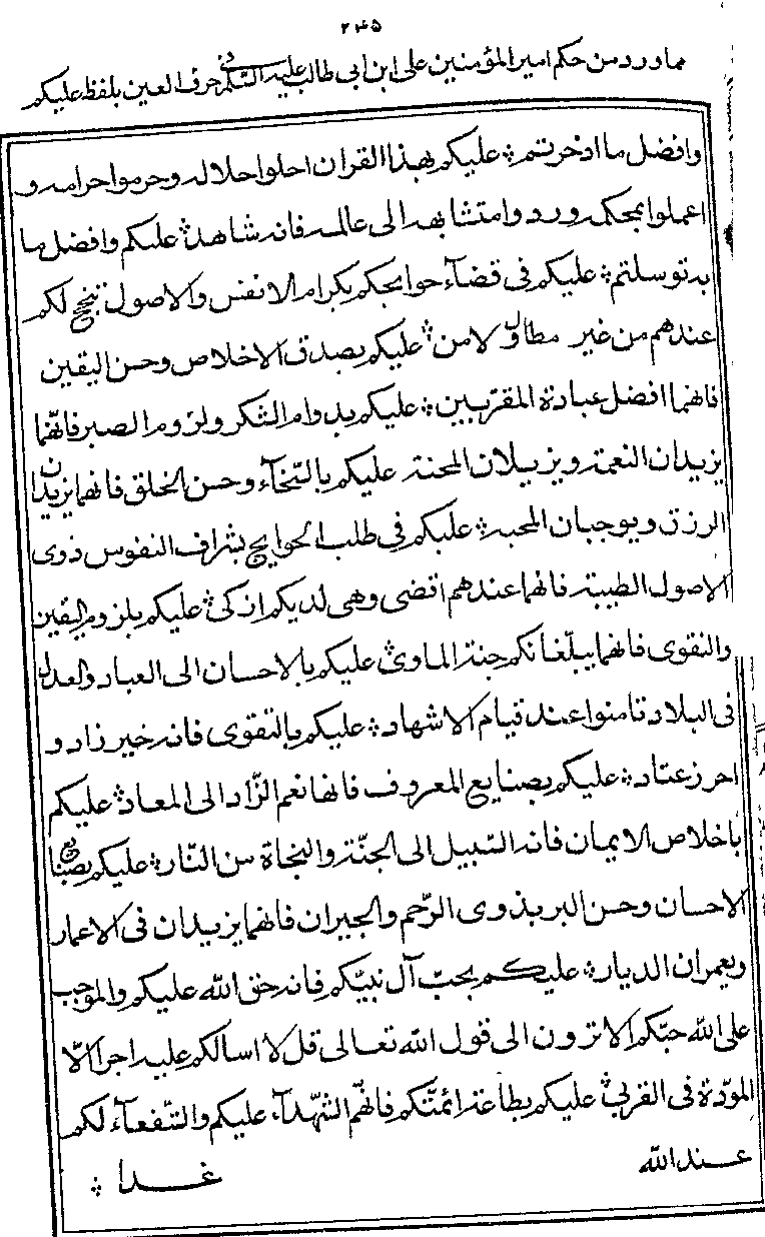 ۲۴۵
مما ورد من حكم امير المؤمنين على ابن ابى طالب عليه السّلام فى حرف العين بلفظ عليكم
وافضل ما ادخرتم عليكم بهذا القران احلوا حلاله وحرموا حرامه و
اعملوا بمحكمه وردوا متشابهه الى عالمه فانه شاهد عليكم وافضل ما
به توسلتم عليكم فى قضآء حوايجكم بكرام الانفس والاصول تنجح لكم
عندهم من غير مطال ولا من عليكم بصدق الاخلاص وحسن اليقين
فانهما افضل عبادة المقرّبين عليكم بدوام الشكر ولزوم الصبر فانّهما
يزيدان النعمة ويزيلان المحنة عليكم بالسّخآء وحسن الخلق فانهما يزيدان
الرزق ويوجبان المحبة عليكم فى طلب الحوايج بشراف النفوس ذوى
الاصول الطيبة فانها عندهم اقضى وهى لديكم ازكى عليكم بلزوم اليقين
والتقوى فانهما يبلّغانكم جنة الماوى عليكم بالاحسان الى العباد والعدل
فى البلاد تامنوا عند قيام الاشهاد عليكم بالتقوى فانه خير زاد و
احرز عتاد عليكم بصنايع المعروف فانها نعم الزّاد الى المعاد عليكم
باخلاص الايمان فانه السّبيل الى الجنّة والنجاة من النّار عليكم بصنايع
الاحسان وحسن البر بذوى الرّحم والجيران فانهما يزيدان فى الاعمار
ويعمران الديار عليكم بحبّ آل نبيّكم فانه حق الله عليكم والموجب
على الله حبّكم الا ترون الى قول الله تعالى قل لا اسالكم عليه اجرا الّا
المودّة فى القربى عليكم بطاعة ائمتّكم فانّهم الشهّدآء عليكم والشّفعآء لكم
عند الله غدا